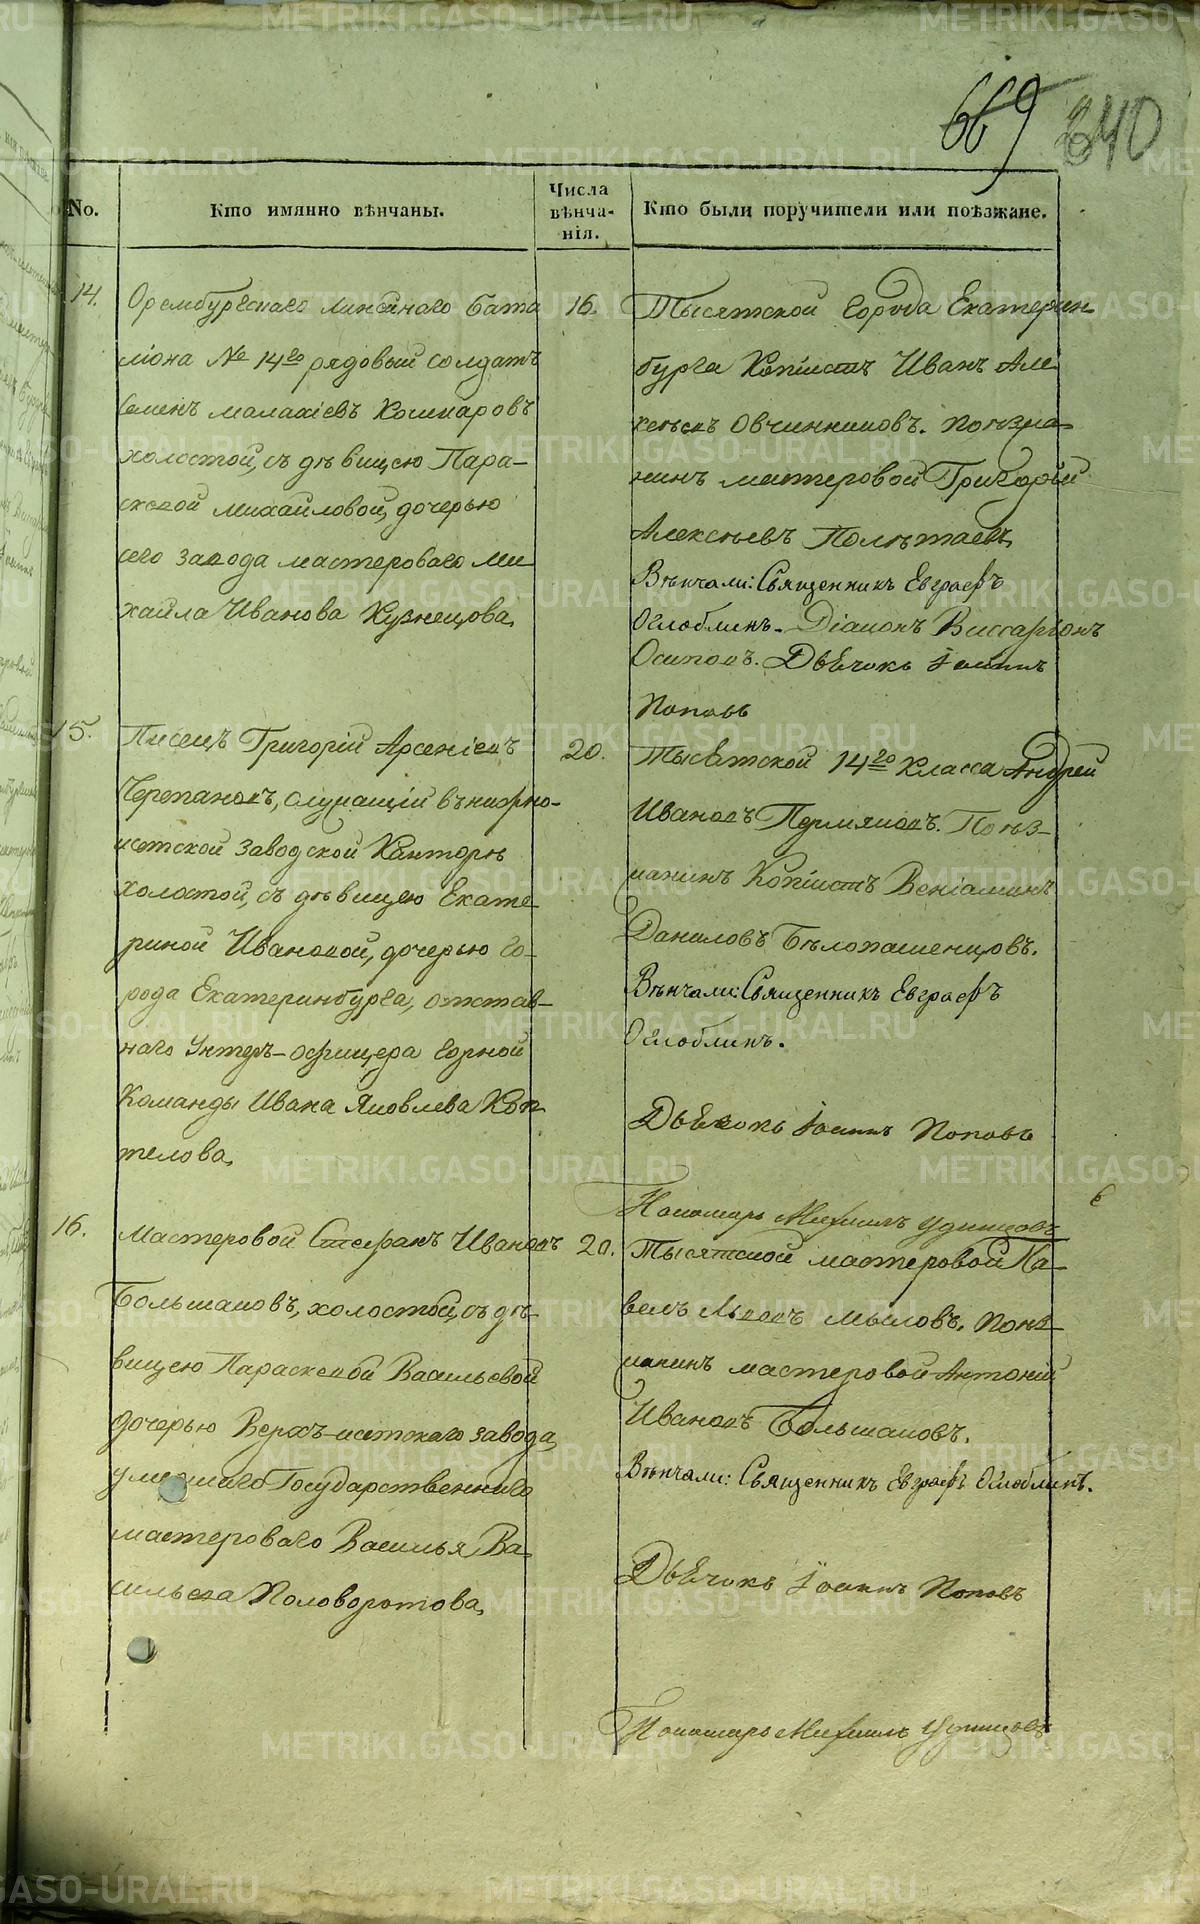 669 340
No.
Кто имянно вѣнчаны.
Числа вѣнча-
нія.
Кто были поручители или поѣзжане.
14.
Оренбургскаго линѣйнаго бата
ліона № 14го рядовый солдатъ
Семенъ Малахіевъ Кошкаровъ
холостой, съ дѣвицею Пара-
сковой Михайловой, дочерью
сего завода мастероваго Ми
хайла Иванова Кузнецова,
16.
Тысятской города Екатерин
бурга Копіистъ Иванъ Але
ксѣевъ Овчинниковъ. Поѣзжа-
нинъ мастеровой Григорій
Алексѣевъ Полѣтаевъ,
Вѣнчали: Священникъ Евграфъ
Оглоблинъ. Діаконъ Виссаріонъ
Осиповъ. Дьячокъ Іоаннъ
Поповъ
15.
Писецъ Григорій Арсеніевъ
Черепановъ, служащій въ нижно-
исетской заводской Канторѣ
холостой, съ дѣвицею Екате
риной Ивановой, дочерью го-
рода Екатеринбурга, отстав-
наго Унтеръ-офицера горной
Команды Ивана Яковлева Коп
телова,
20.
Тысятской 14го класса Андрей
Ивановъ Пермяковъ. Поѣз-
жанинъ Копіистъ Веніаминъ
Даниловъ Бѣлопашенцовъ.
Вѣнчали: Священникъ Евграфъ
Оглоблинъ.
Дьячокъ Іоаннъ Поповъ
Пономарь Михаилъ Удинцовъ
16.
Мастеровой Стефанъ Ивановъ
Большаковъ, холостой, съ дѣ-
вицею Параскевой Васильевой
дочерью Верхъ-исетскаго завода,
умершаго Государственнаго
мастероваго Василья Ва
сильева Половоротова,
20.
Тысятской мастеровой Па-
велъ Львовъ Мыловъ. Поѣз
жанинъ мастеровой Антоній
Ивановъ Большаковъ.
Вѣнчали: Священникъ Евграфъ Оглоблинъ.
Дьячокъ Іоаннъ Поповъ
Пономарь Михаилъ Удинцовъ
METRIKI.GASO-URAL.RU